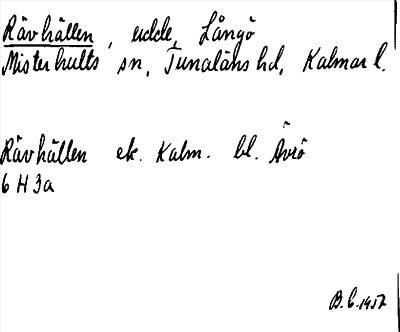 Rävhällen, udde, Långö
Misterhults sn, Tunaläns hd, Kalmar l.
Rävhällen ek. Kalm. bl. Ävrö
6 H 3a
B.C. 1957